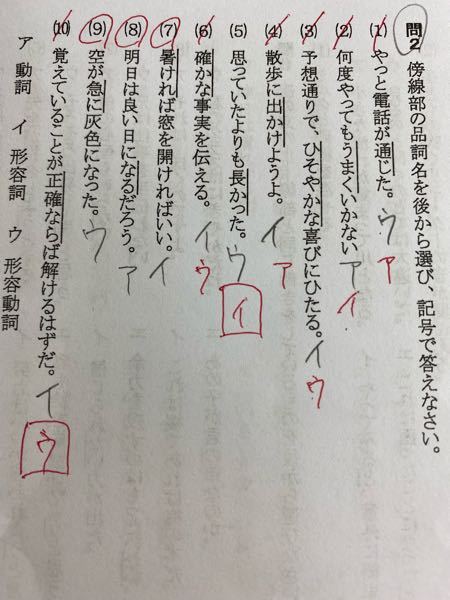 問2 傍線部の品詞名を後から選び、記号で答えなさい。
(1) やっと電話が通じた。 ウ ア
(2) 何度やってもうまくいかない ア イ
(3) 予想通りで、ひそやかな喜びにひたる。 イ ウ
(4) 散歩に出かけようよ。 イ ア
(5) 思っていたよりも長かった。 ウ イ
(6) 確かな事実を伝える。 イ ウ
(7) 暑ければ窓を開ければいい。 イ
(8) 明日は良い日になるだろう。 ア
(9) 空が急に灰色になった。 ウ
(10) 覚えていることが正確ならば解けるはずだ。 イ ウ
ア 動詞 イ 形容詞 ウ 形容動詞